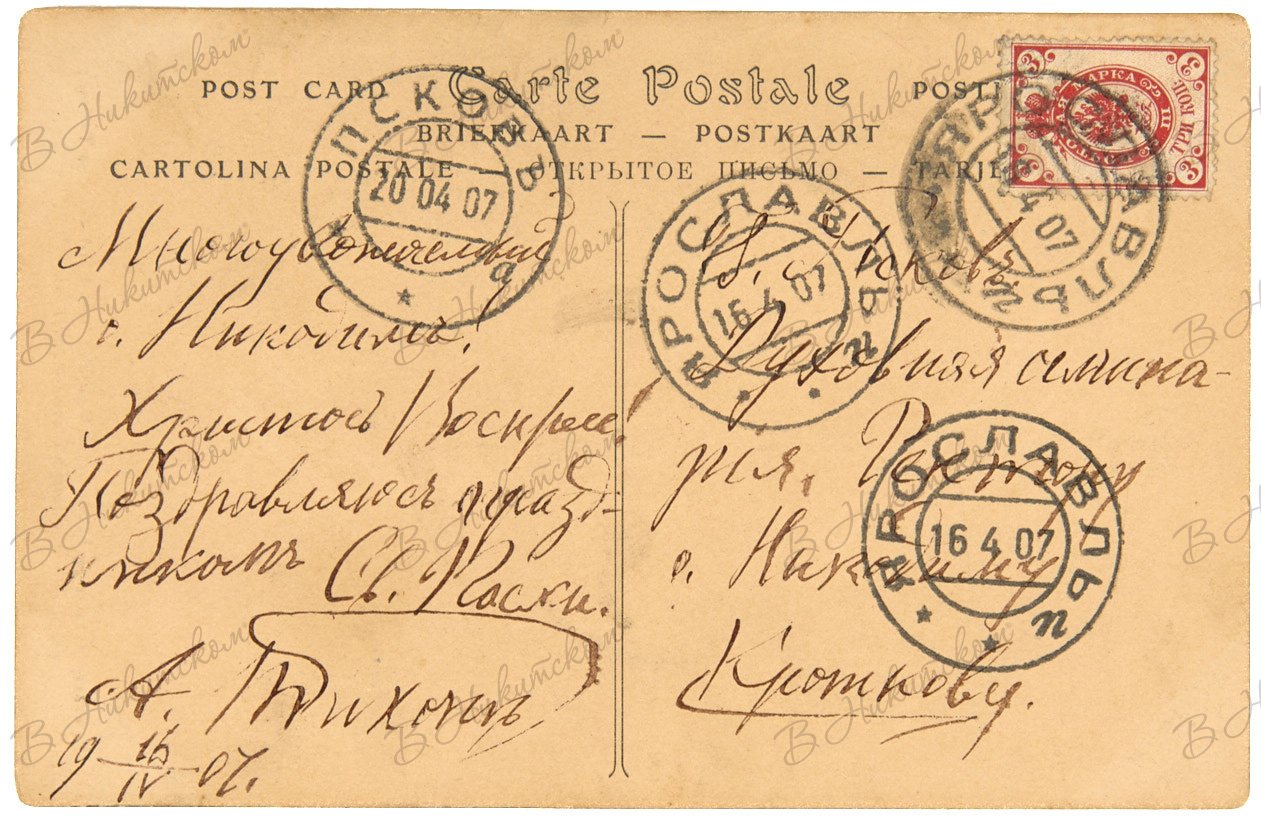 POST CARD Carte Postale POSTK
BRIEFKAART — POSTKAART
CARTOLINA POSTALE — ОТКРЫТОЕ ПИСЬМО — TARJE
ПСКОВЪ
20 04 07
а
ЯРОСЛАВЛЬ
16 4 07
п
ЯРОСЛАВЛЬ
4 07
п
МАРКА
3
3
3
3
ТРИ КОП
Многоуважаемый
о. Никодимъ!
Христосъ Воскресе!
Поздравляю съ празд-
никомъ Св. Пасхи.
А. Тихонъ
19 16/IV 07.
Г. Псковъ.
Духовная семина-
рия,
о. Никодиму
Кроткову.
ЯРОСЛАВЛЬ
16 4 07
п
В Никитском